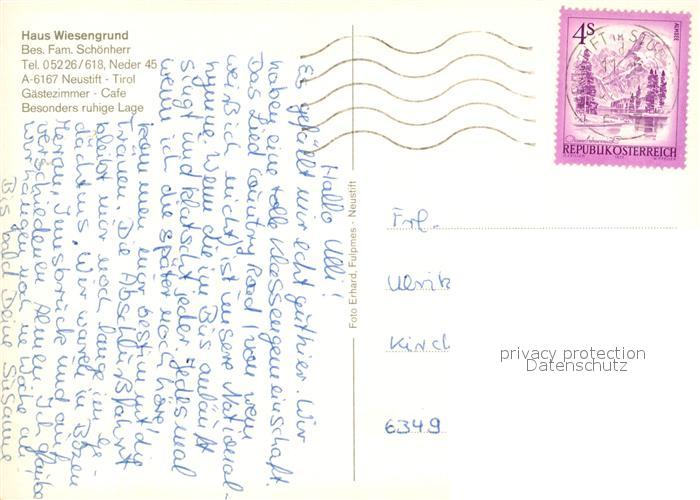 Haus Wiesengrund
Bes. Fam. Schönherr
Tel. 05226/618, Neder 45
A-6167 Neustift - Tirol
Gästezimmer - Cafe
Besonders ruhige Lage
Hallo Ulli!
Es gefällt mir echt gut hier. Wir
haben eine tolle Klassengemeinschaft.
Das Lied Country Road (von wem
weiß ich nicht) ist unsere National-
hymne. Wenn die im Bus anläuft
singt und klatscht jeder. Jedesmal
wenn ich die später noch höre,
kommen mir bestimmt die
Tränen. Die Abschlußfahrt
bleibt mir noch lange im Ge-
dächtnis. Wir waren in Bozen
Meran, Innsbruck und auf
verschiedenen Almen. Ich glaube
wir hängen noch ne Woche an
Bis bald Deine Susanne
Foto Erhard, Fulpmes - Neustift
4S
ALMSEE
REPUBLIK ÖSTERREICH
Frl.
Ulrik
Kirch
6349
privacy protection
Datenschutz